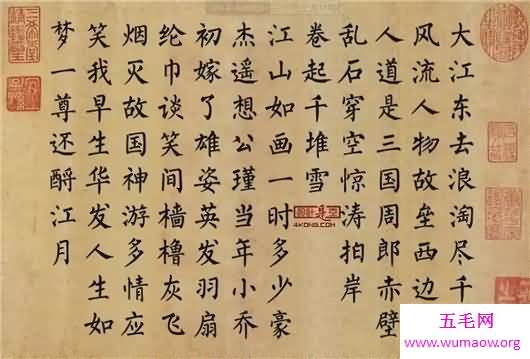 大江东去浪淘尽千
风流人物故垒西边
人道是三国周郎赤壁
乱石穿空惊涛拍岸
卷起千堆雪
江山如画一时多少豪
杰遥想公瑾当年小乔
初嫁了雄姿英发羽扇
纶巾谈笑间樯橹灰飞
烟灭故国神游多情应
笑我早生华发人生如
梦一尊还酹江月
4KONG.COM
五毛网
www.wumaow.org